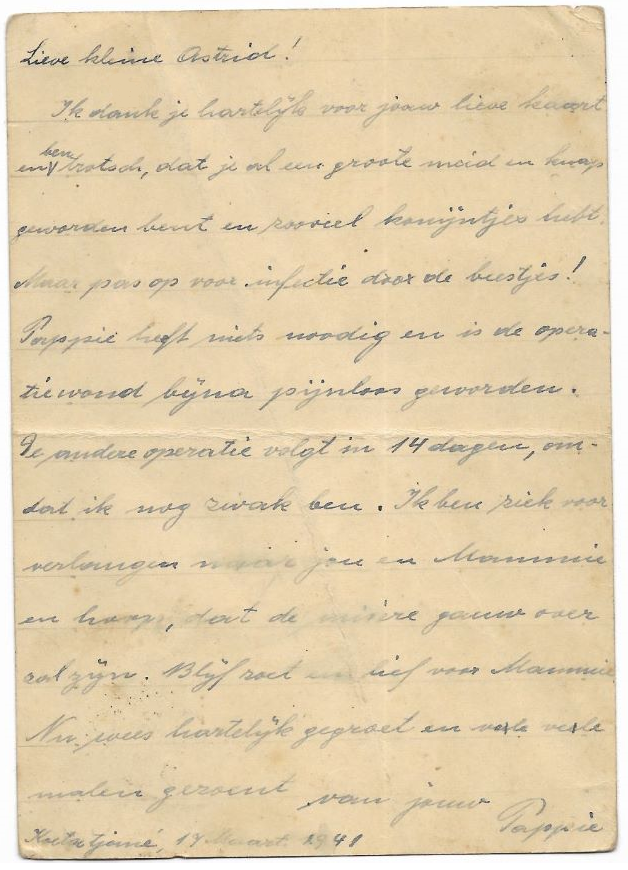 Lieve kleine Astrid!
Ik dank je hartelijk voor jouw lieve kaart
en ben trotsch, dat je al een groote meid en knap
geworden bent en zooveel konijntjes hebt.
Maar pas op voor infectie door de beestjes!
Pappie heeft niets noodig en is de opera-
tiewond bijna pijnloos geworden.
De andere operatie volgt in 14 dagen, om-
dat ik nog zwak ben. Ik ben ziek voor
verlangen naar jou en Mammie
en hoop, dat de misère gauw over
zal zijn. Blijf zoet en lief voor Mammie
Nu wees hartelijk gegroet en vele vele
malen gezoent van jouw Pappie
Maart 1941